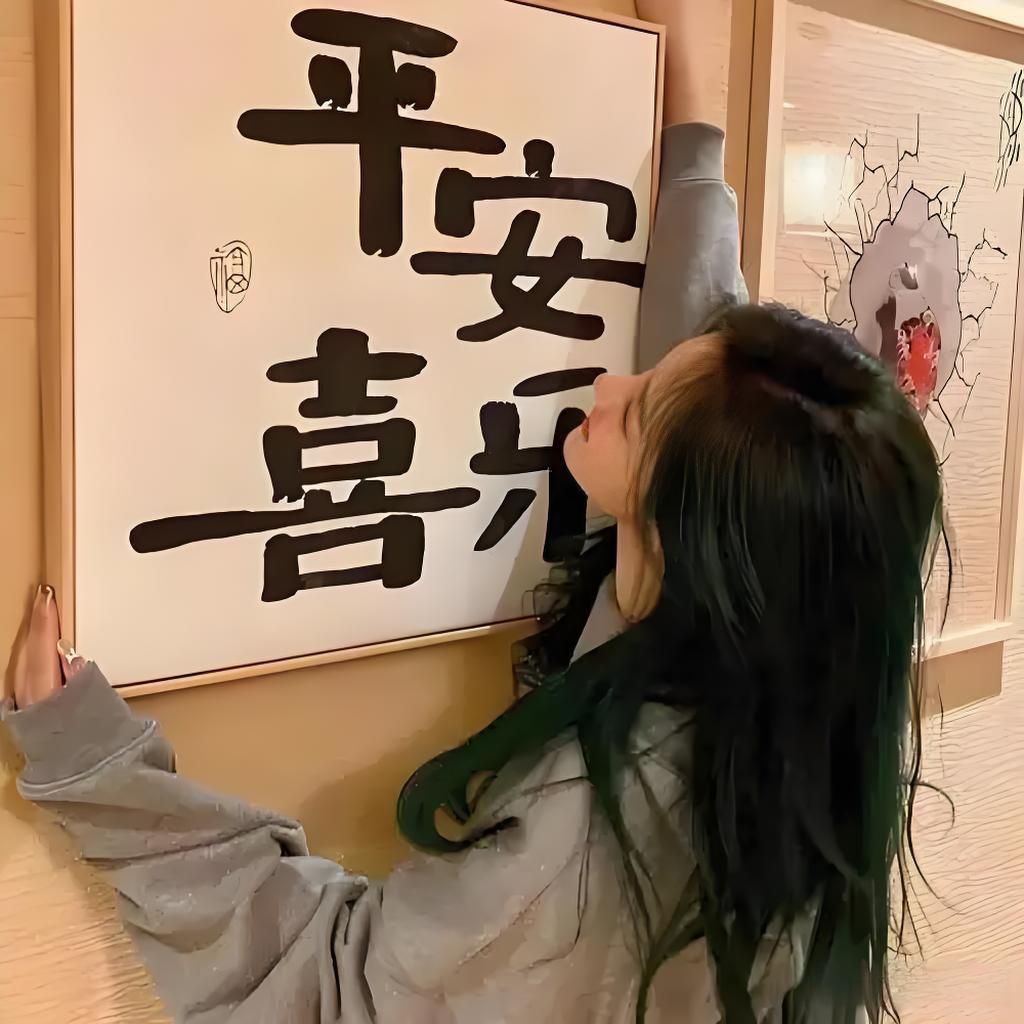 平安
福
喜乐